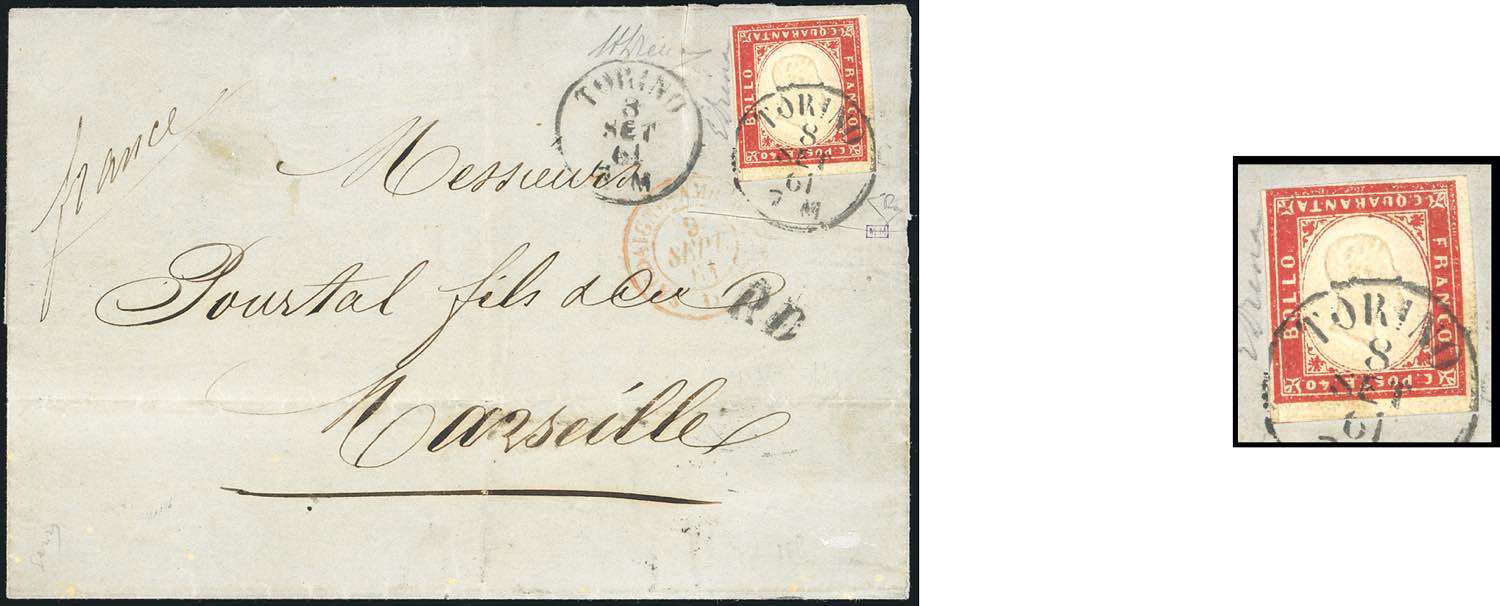 france
TORINO
8
SET
61
M
C. QUARANTA
BOLLO
FRANCO
C. POSTE 40
TORINO
8
SET
61
7 M
Messieurs
9
SEPT
61
P.D
Pourtal fils
Marseille
C. QUARANTA
BOLLO
FRANCO
C. POSTE 40
TORINO
8
SET
61